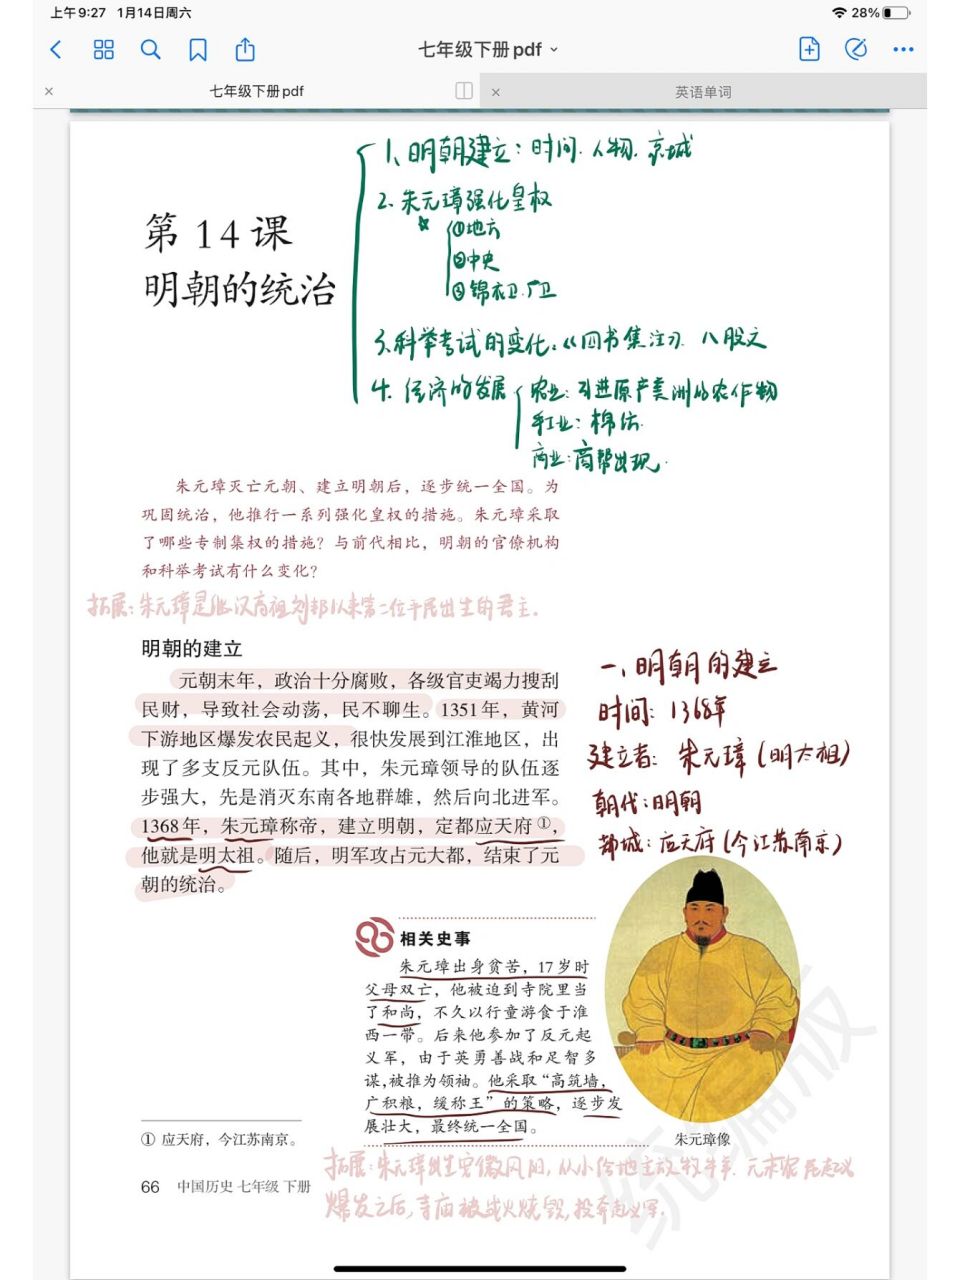 上午9:27 1月14日周六
28%
七年级下册pdf
七年级下册pdf
英语单词
1、明朝建立：时间、人物、京城
2、朱元璋强化皇权
①地方
②中央
③锦衣卫、厂卫
3、科举考试的变化：《四书集注》 八股文
4、经济的发展
农业：引进原产美洲的农作物
手工业：棉纺
商业：商帮出现
第14课
明朝的统治
朱元璋灭亡元朝、建立明朝后，逐步统一全国。为
巩固统治，他推行一系列强化皇权的措施。朱元璋采取
了哪些专制集权的措施？与前代相比，明朝的官僚机构
和科举考试有什么变化？
拓展：朱元璋是继汉高祖刘邦以来第二位平民出生的君主。
明朝的建立
元朝末年，政治十分腐败，各级官吏竭力搜刮
民财，导致社会动荡，民不聊生。1351年，黄河
下游地区爆发农民起义，很快发展到江淮地区，出
现了多支反元队伍。其中，朱元璋领导的队伍逐
步强大，先是消灭东南各地群雄，然后向北进军。
1368年，朱元璋称帝，建立明朝，定都应天府①，
他就是明太祖。随后，明军攻占元大都，结束了元
朝的统治。
一、明朝的建立
时间：1368年
建立者：朱元璋（明太祖）
朝代：明朝
都城：应天府（今江苏南京）
相关史事
朱元璋出身贫苦，17岁时
父母双亡，他被迫到寺院里当
了和尚，不久以行童游食于淮
西一带。后来他参加了反元起
义军，由于英勇善战和足智多
谋，被推为领袖。他采取“高筑墙，
广积粮，缓称王”的策略，逐步发
展壮大，最终统一全国。
朱元璋像
① 应天府，今江苏南京。
拓展：朱元璋出生安徽凤阳，从小给地主放牧牛羊，元末农民起义
爆发之后，寺庙被战火烧毁，投奔起义军。
66 中国历史 七年级 下册
统编版